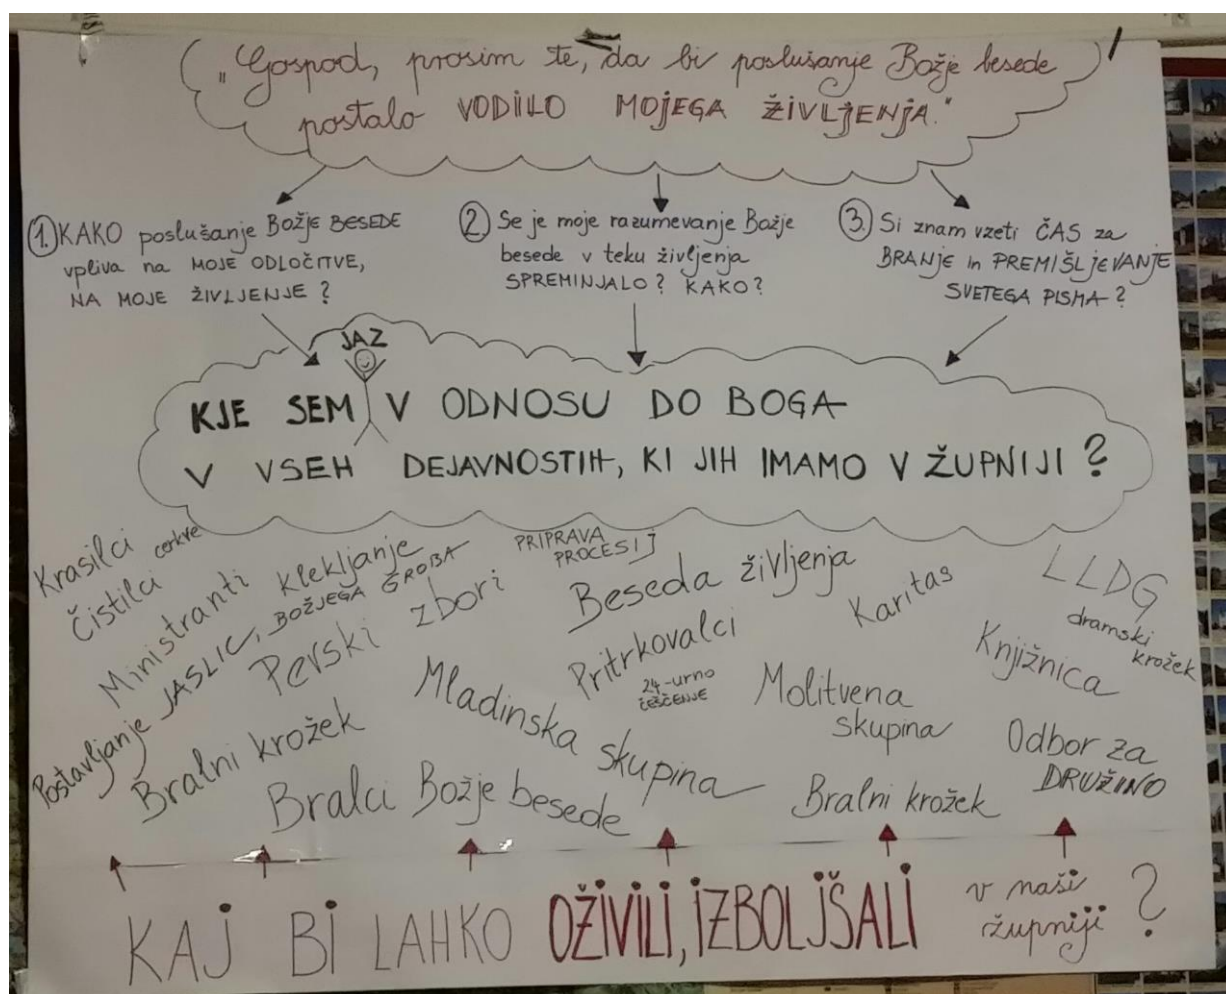 „Gospod, prosim te, da bi poslušanje Božje besede
postalo VODILO MOJEGA ŽIVLJENJA."
1. KAKO poslušanje BOŽJE BESEDE
vpliva na MOJE ODLOČITVE,
NA MOJE ŽIVLJENJE?
2 Se je moje razumevanje Božje
besede v teku življenja
SPREMINJALO? KAKO?
3. Si znam vzeti ČAS za
BRANJE in PREMIŠLJEVANJE
SVETEGA PISMA?
JAZ
KJE SEM V ODNOSU DO BOGA
V VSEH DEJAVNOSTIH, KI JIH IMAMO V ŽUPNIJI?
Krasilci cerkve
Čistilci
Ministranti
Klekljanje
Postavljanje JASLIC, BOŽJEGA GROBA
Pevski zbori
PRIPRAVA
PROCESIJ
Beseda življenja
Karitas
LLDG
dramski
krožek
Pritrkovalci
24-urno
ČEŠČENJE
Knjižnica
Molitvena
skupina
Mladinska skupina
Bralni krožek
Odbor za
DRUŽINO
Bralci Božje besede
Bralni krožek
KAJ BI LAHKO OŽIVILI, IZBOLJŠALI v naši
župniji?